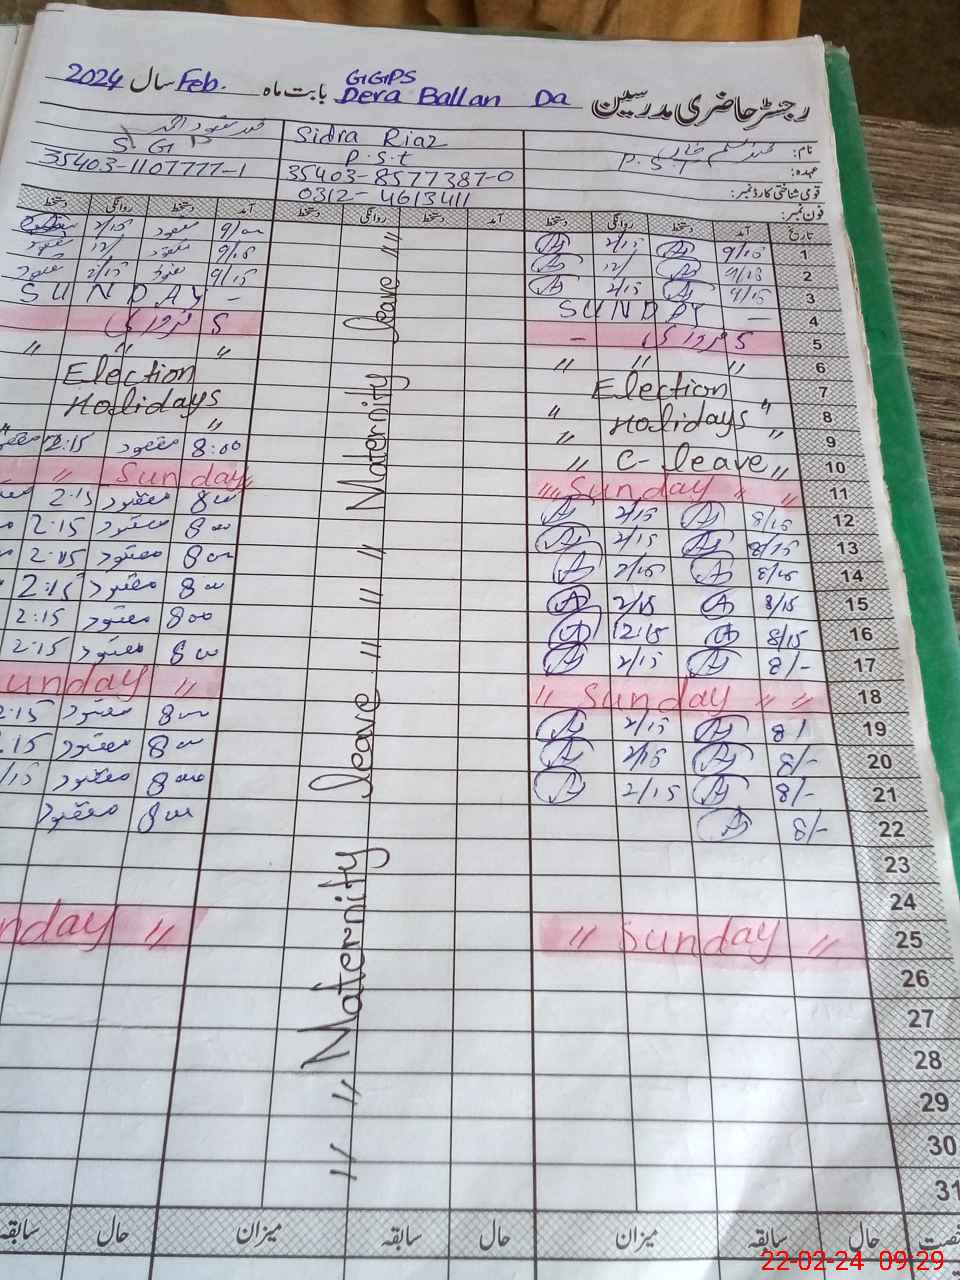 رجسٹر حاضری مدرسین GGPS Dera Ballan Da بابت ماہ Feb. سال 2024
نام: Sidra Riaz
عہدہ: P.S.T P.S.t S.G
قومی شناختی کارڈ نمبر: 35403-8577387-0 35403-1107777-1
فون نمبر: 0312-4613411
تاریخ آمد دستخط روانگی دستخط آمد دستخط روانگی دستخط آمد دستخط روانگی دستخط
1 9/15 2/15 9/00 2/15
2 9/15 12/ 9/15 12/
3 9/15 2/15 9/15 2/15
4 — SUNDAY — SUNDAY
5 5 فروری 5 فروری
6 " " " " " "
7 Election Election
8 " Holidays " Holidays
9 " " " "
10 " C-leave " 8:00 2:15
11 " Sunday " " Sunday "
12 8/15 2/15 8 00 2:15
13 8/15 2/15 8 00 2:15
14 8/15 2/15 8 00 2:15
15 8/15 2/15 8 00 2:15
16 8/15 2:15 8 00 2:15
17 8/- 2/15 8 00 2:15
18 " Sunday " " unday "
19 8/ 2/15 8 00 2:15
20 8/- 2/15 8 00 2.15
21 8/- 2/15 8 00 /15
22 8/- 8 00
23
24
25 " Sunday " nday "
26
27
28
29
30
31
" Maternity leave " " " Maternity leave "
حال سابقہ میزان حال سابقہ میزان حال سابقہ
22-02-24 09:29